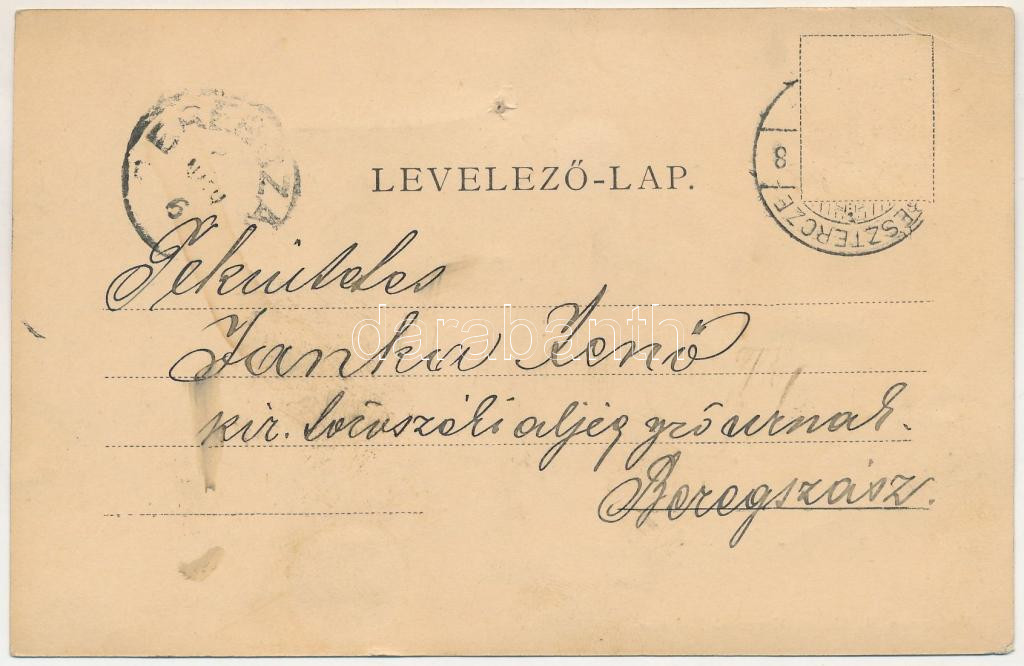 LEVELEZŐ-LAP.
8
ESZTERCZE
6
Tekintetes
Janka Jenő
kir. törvszéki aljegyző urnak.
Beregszász.
darabanth